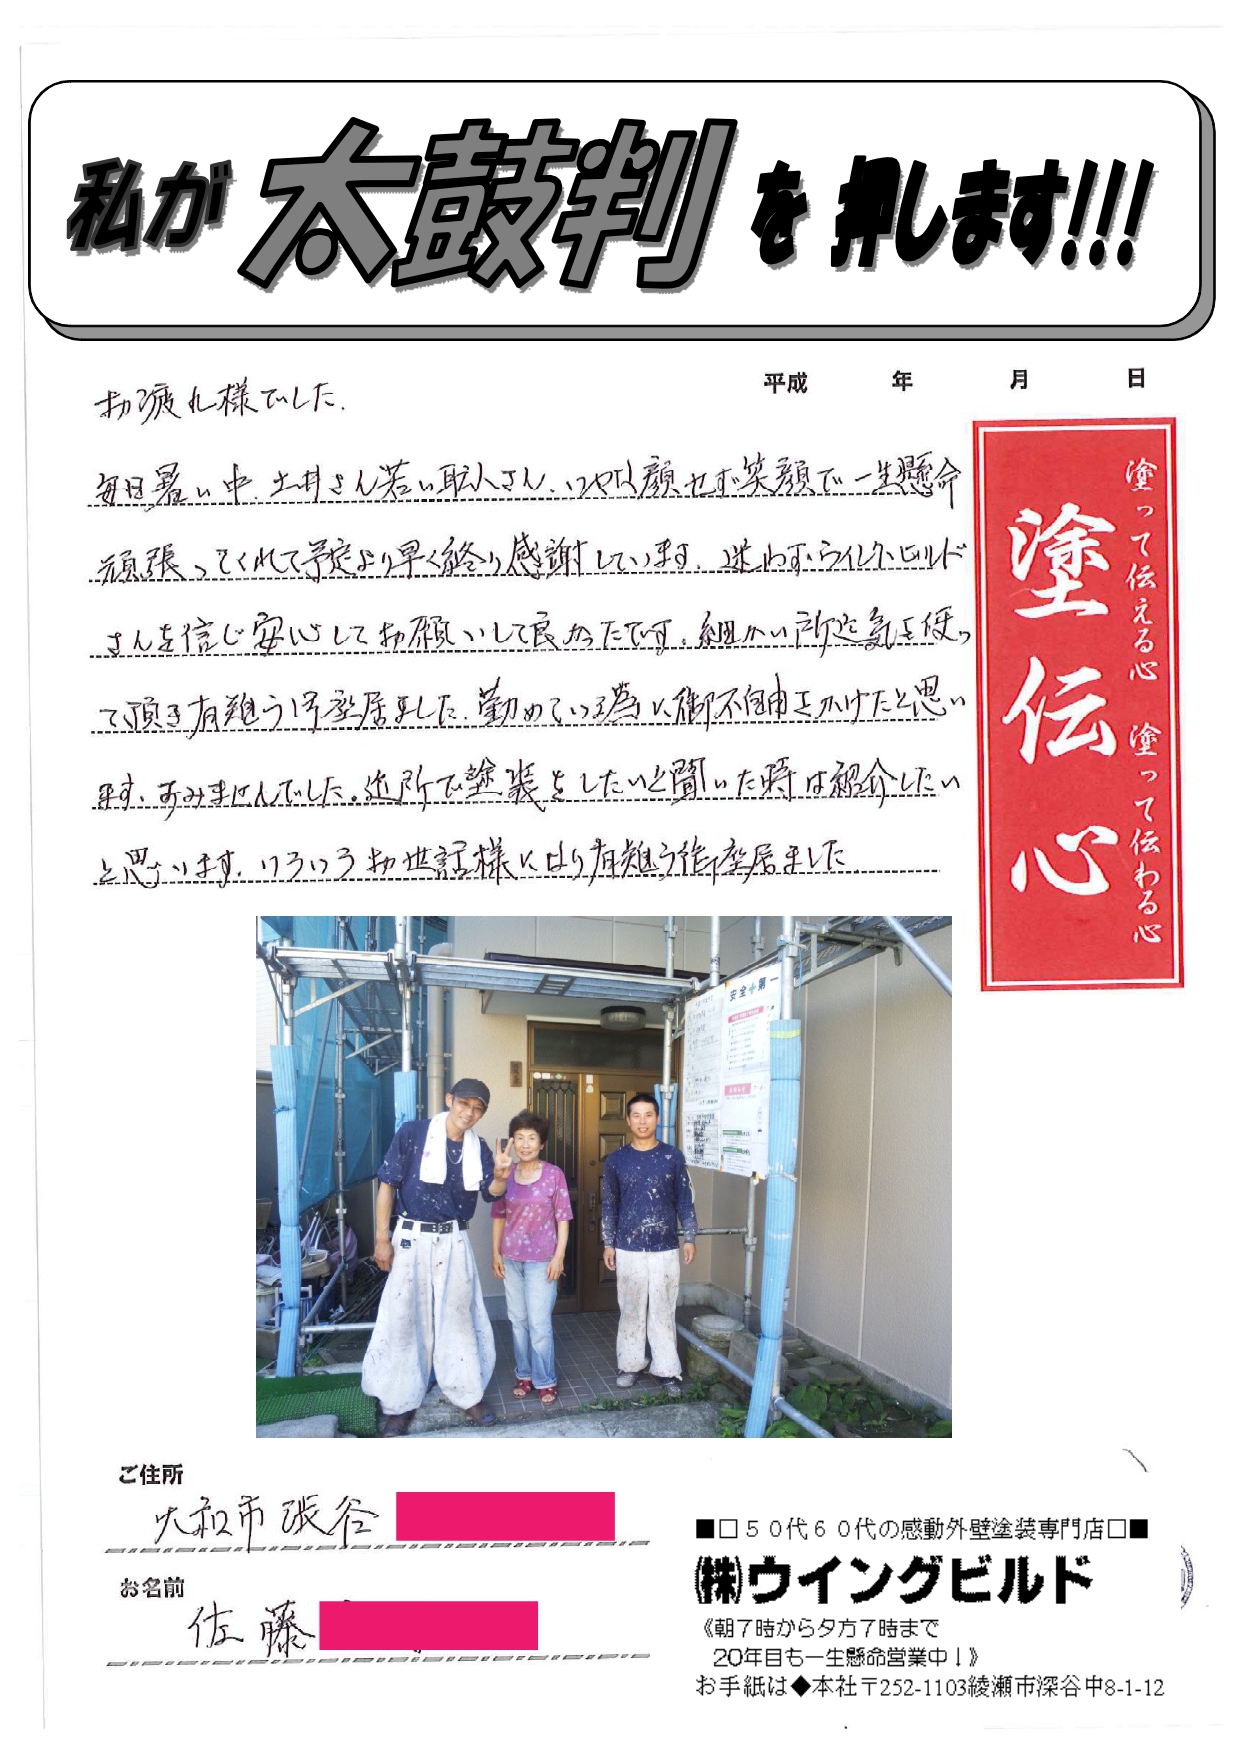 私が太鼓判を押します!!!
平成 年 月 日
お疲れ様でした.
毎日暑い中、土井さん若い職人さん、いやな顔せず笑顔で一生懸命
頑張ってくれて予定より早く終り感謝しています。迷わずウイングビルド
さんを信じ安心してお願いして良かったです。細かい所迄気を使っ
て頂き有難う御座居ました。勤めている為に御不自由をかけたと思い
ます。すみませんでした。近所で塗装をしたいと聞いた時は紹介したい
と思います。いろいろお世話様になり有難う御座居ました
塗って伝える心 塗って伝わる心
塗伝心
安全+第一
ご住所
大和市深谷
お名前
佐藤
■□50代60代の感動外壁塗装専門店□■
㈱ウイングビルド
《朝7時から夕方7時まで
20年目も一生懸命営業中！》
お手紙は◆本社〒252-1103綾瀬市深谷中8-1-12